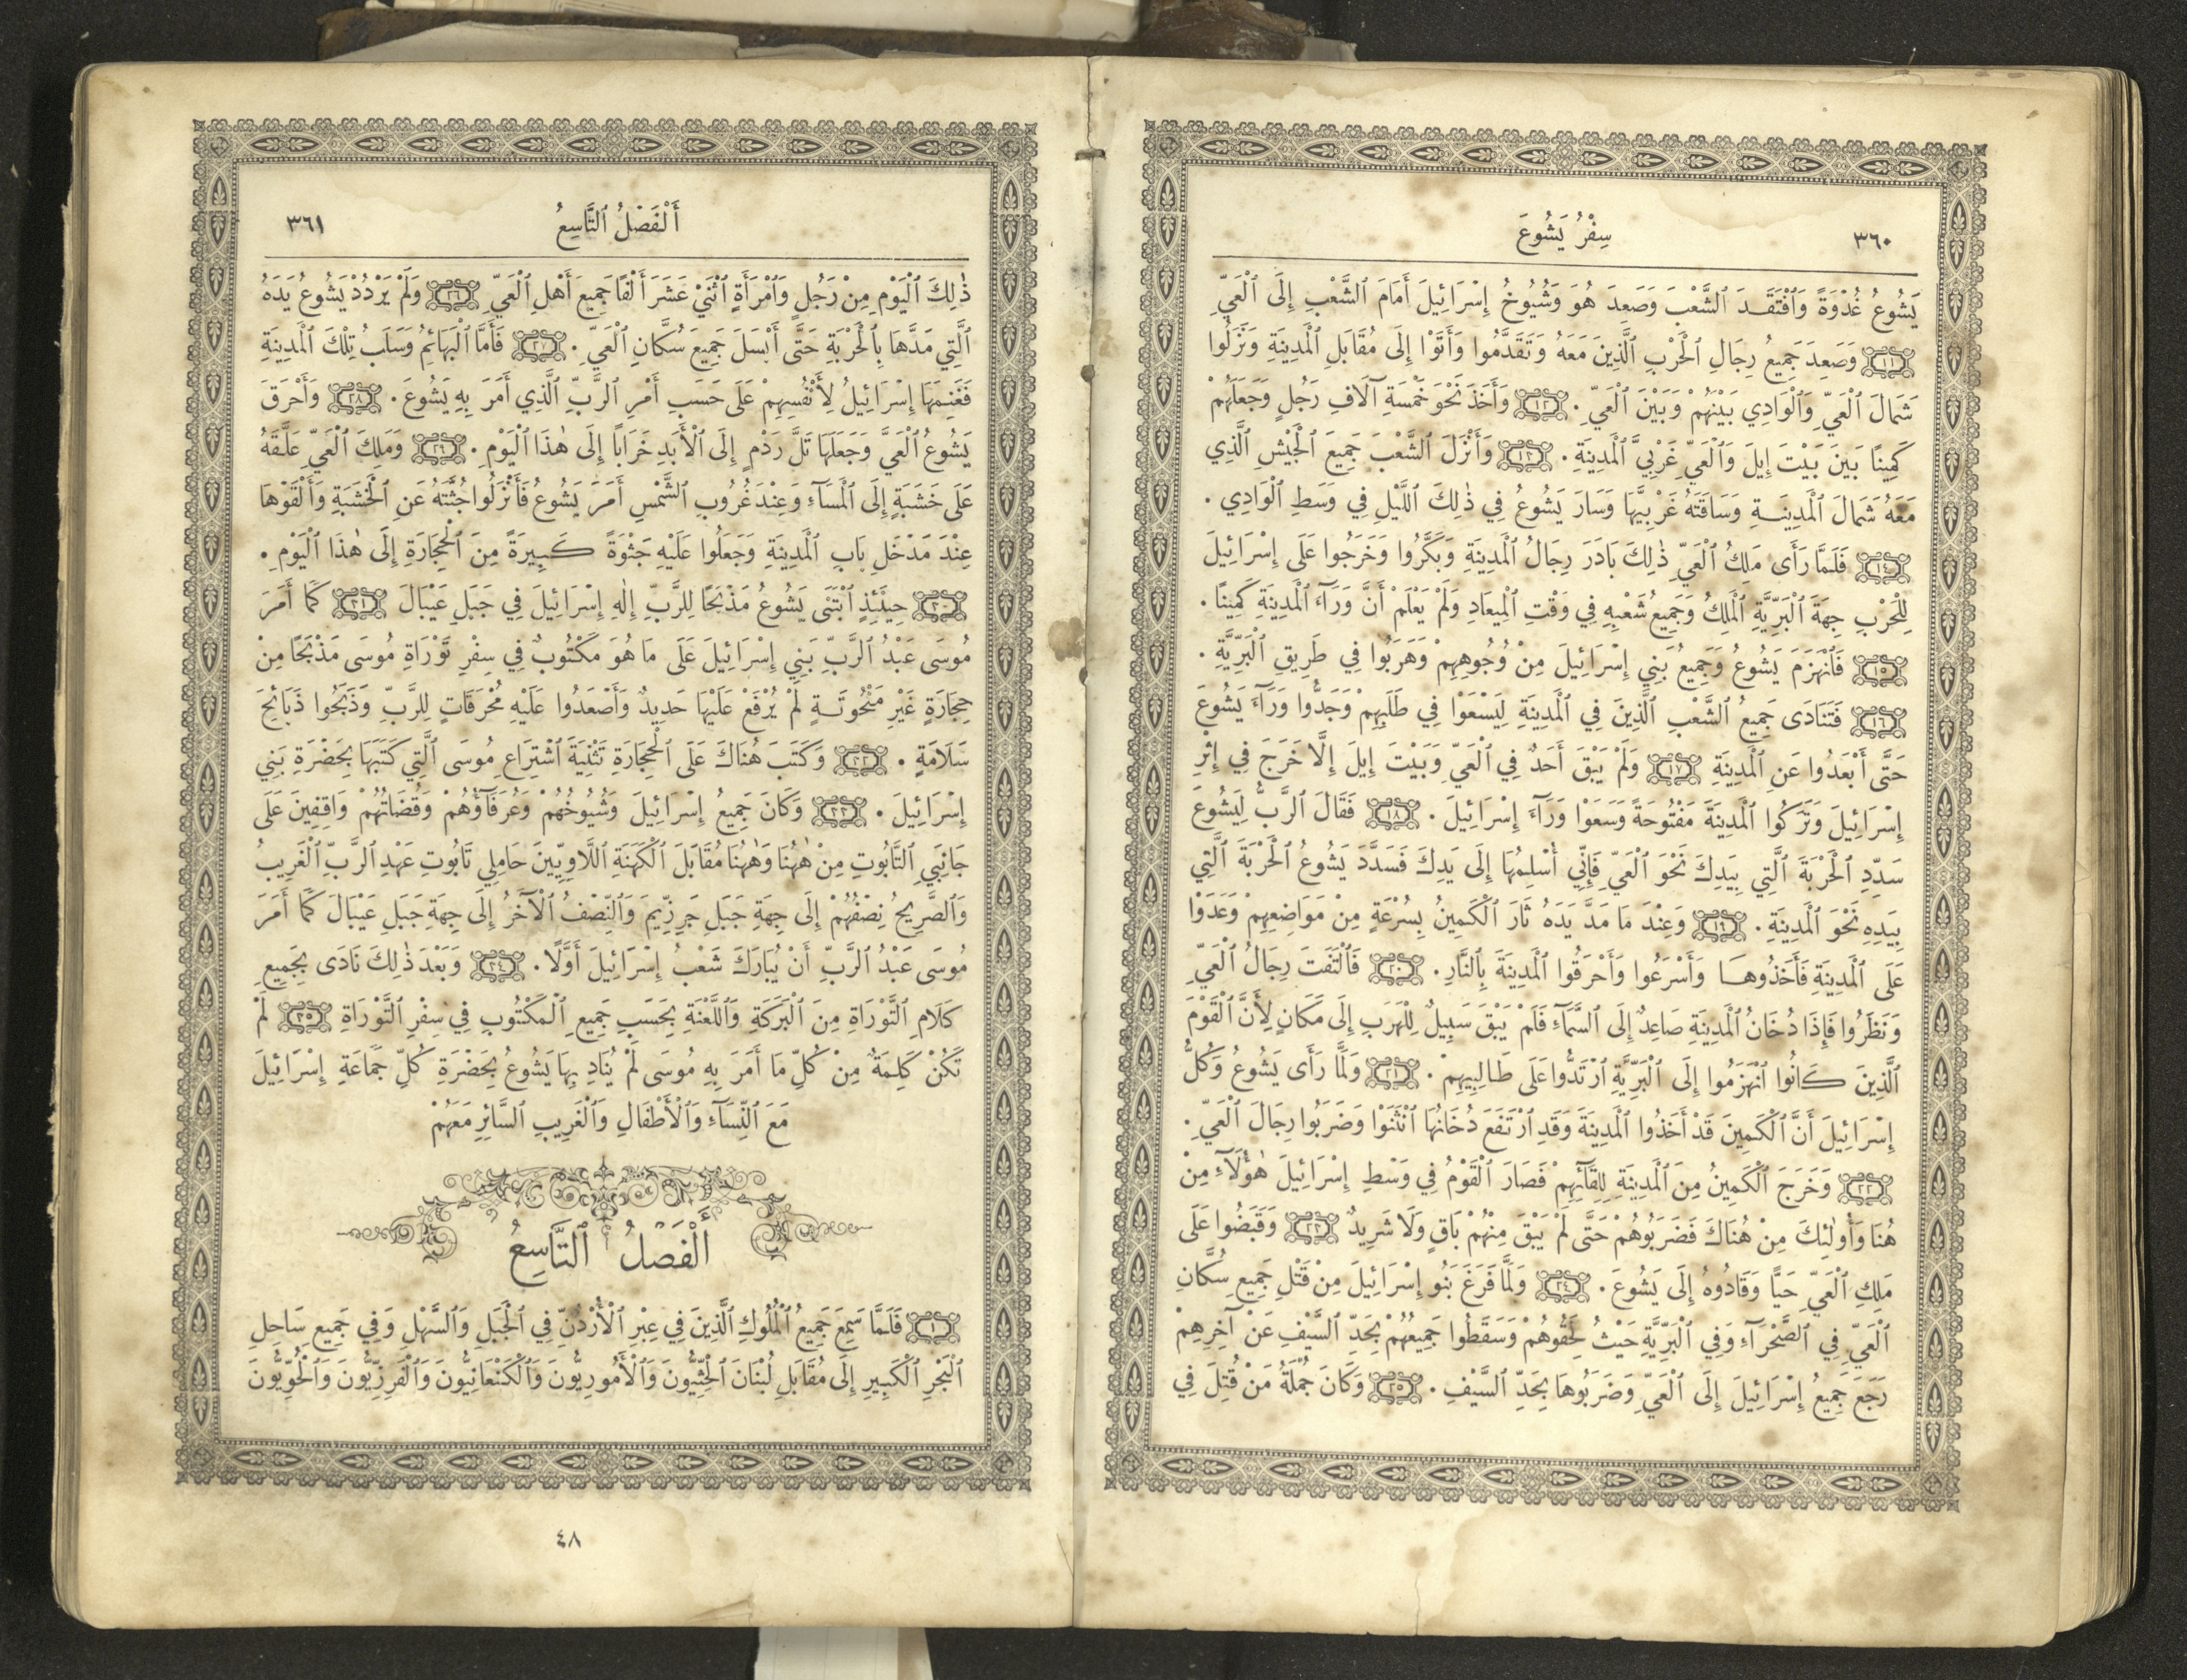 ٣٦٠
سِفْرُ يَشُوعَ
يَشُوعُ غُدْوَةً وَٱفْتَقَدَ ٱلشَّعْبَ وَصَعِدَ هُوَ وَشُيُوخُ إِسْرَائِيلَ أَمَامَ ٱلشَّعْبِ إِلَى ٱلْعَيِّ
﴿١١﴾ وَصَعِدَ جَمِيعُ رِجَالِ ٱلْحَرْبِ ٱلَّذِينَ مَعَهُ وَتَقَدَّمُوا وَأَتَوْا إِلَى مُقَابَلِ ٱلْمَدِينَةِ وَنَزَلُوا
شَمَالَ ٱلْعَيِّ وَٱلْوَادِي بَيْنَهُمْ وَبَيْنَ ٱلْعَيِّ. ﴿١٢﴾ وَأَخَذَ نَحْوَ خَمْسَةِ آلَافِ رَجُلٍ وَجَعَلَهُمْ
كَمِينًا بَيْنَ بَيْتَ إِيلَ وَٱلْعَيِّ غَرْبِيَّ ٱلْمَدِينَةِ. ﴿١٣﴾ وَأَنْزَلَ ٱلشَّعْبَ جَمِيعَ ٱلْجَيْشِ ٱلَّذِي
مَعَهُ شَمَالَ ٱلْمَدِينَةِ وَسَاقَتَهُ غَرْبِيَّهَا وَسَارَ يَشُوعُ فِي ذٰلِكَ ٱللَّيْلِ فِي وَسَطِ ٱلْوَادِي.
﴿١٤﴾ فَلَمَّا رَأَى مَلِكُ ٱلْعَيِّ ذٰلِكَ بَادَرَ رِجَالُ ٱلْمَدِينَةِ وَبَكَّرُوا وَخَرَجُوا عَلَى إِسْرَائِيلَ
لِلْحَرْبِ جِهَةَ ٱلْبَرِّيَّةِ ٱلْمَلِكُ وَجَمِيعُ شَعْبِهِ فِي وَقْتِ ٱلْمِيعَادِ وَلَمْ يَعْلَمْ أَنَّ وَرَآءَ ٱلْمَدِينَةِ كَمِينًا.
﴿١٥﴾ فَٱنْهَزَمَ يَشُوعُ وَجَمِيعُ بَنِي إِسْرَائِيلَ مِنْ وُجُوهِهِمْ وَهَرَبُوا فِي طَرِيقِ ٱلْبَرِّيَّةِ.
﴿١٦﴾ فَتَنَادَى جَمِيعُ ٱلشَّعْبِ ٱلَّذِينَ فِي ٱلْمَدِينَةِ لِيَسْعَوْا فِي طَلَبِهِمْ وَجَدُّوا وَرَآءَ يَشُوعَ
حَتَّى أَبْعَدُوا عَنِ ٱلْمَدِينَةِ ﴿١٧﴾ وَلَمْ يَبْقَ أَحَدٌ فِي ٱلْعَيِّ وَبَيْتَ إِيلَ إِلَّا خَرَجَ فِي إِثْرِ
إِسْرَائِيلَ وَتَرَكُوا ٱلْمَدِينَةَ مَفْتُوحَةً وَسَعَوْا وَرَآءَ إِسْرَائِيلَ. ﴿١٨﴾ فَقَالَ ٱلرَّبُّ لِيَشُوعَ
سَدِّدِ ٱلْحَرْبَةَ ٱلَّتِي بِيَدِكَ نَحْوَ ٱلْعَيِّ فَإِنِّي أُسْلِمُهَا إِلَى يَدِكَ فَسَدَّدَ يَشُوعُ ٱلْحَرْبَةَ ٱلَّتِي
بِيَدِهِ نَحْوَ ٱلْمَدِينَةِ. ﴿١٩﴾ وَعِنْدَ مَا مَدَّ يَدَهُ ثَارَ ٱلْكَمِينُ بِسُرْعَةٍ مِنْ مَوَاضِعِهِمْ وَعَدَوْا
عَلَى ٱلْمَدِينَةِ فَأَخَذُوهَا وَأَسْرَعُوا وَأَحْرَقُوا ٱلْمَدِينَةَ بِٱلنَّارِ. ﴿٢٠﴾ فَٱلْتَفَتَ رِجَالُ ٱلْعَيِّ
وَنَظَرُوا فَإِذَا دُخَانُ ٱلْمَدِينَةِ صَاعِدٌ إِلَى ٱلسَّمَآءِ فَلَمْ يَبْقَ سَبِيلٌ لِلْهَرَبِ إِلَى مَكَانٍ لِأَنَّ ٱلْقَوْمَ
ٱلَّذِينَ كَانُوا ٱنْهَزَمُوا إِلَى ٱلْبَرِّيَّةِ ٱرْتَدُّوا عَلَى طَالِبِيهِمْ. ﴿٢١﴾ وَلَمَّا رَأَى يَشُوعُ وَكُلُّ
إِسْرَائِيلَ أَنَّ ٱلْكَمِينَ قَدْ أَخَذُوا ٱلْمَدِينَةَ وَقَدِ ٱرْتَفَعَ دُخَانُهَا ٱنْثَنَوْا وَضَرَبُوا رِجَالَ ٱلْعَيِّ.
﴿٢٢﴾ وَخَرَجَ ٱلْكَمِينُ مِنَ ٱلْمَدِينَةِ لِلِقَآئِهِمْ فَصَارَ ٱلْقَوْمُ فِي وَسْطِ إِسْرَائِيلَ هٰؤُلَآءِ مِنْ
هُنَا وَأُولٰئِكَ مِنْ هُنَاكَ فَضَرَبُوهُمْ حَتَّى لَمْ يَبْقَ مِنْهُمْ بَاقٍ وَلَا شَرِيدٌ ﴿٢٣﴾ وَقَبَضُوا عَلَى
مَلِكِ ٱلْعَيِّ حَيًّا وَقَادُوهُ إِلَى يَشُوعَ. ﴿٢٤﴾ وَلَمَّا فَرَغَ بَنُو إِسْرَائِيلَ مِنْ قَتْلِ جَمِيعِ سُكَّانِ
ٱلْعَيِّ فِي ٱلصَّحْرَآءِ وَفِي ٱلْبَرِّيَّةِ حَيْثُ لَحِقُوهُمْ وَسَقَطُوا جَمِيعُهُمْ بِحَدِّ ٱلسَّيْفِ عَنْ آخِرِهِمْ
رَجَعَ جَمِيعُ إِسْرَائِيلَ إِلَى ٱلْعَيِّ وَضَرَبُوهَا بِحَدِّ ٱلسَّيْفِ. ﴿٢٥﴾ وَكَانَ جُمْلَةُ مَنْ قُتِلَ فِي
أَلْفَصْلُ ٱلتَّاسِعُ
٣٦١
ذٰلِكَ ٱلْيَوْمِ مِنْ رَجُلٍ وَٱمْرَأَةٍ ٱثْنَيْ عَشَرَ أَلْفًا جَمِيعَ أَهْلِ ٱلْعَيِّ ﴿٢٦﴾ وَلَمْ يَرْدُدْ يَشُوعُ يَدَهُ
ٱلَّتِي مَدَّهَا بِٱلْحَرْبَةِ حَتَّى أَبْسَلَ جَمِيعَ سُكَّانِ ٱلْعَيِّ. ﴿٢٧﴾ فَأَمَّا ٱلْبَهَائِمُ وَسَلَبُ تِلْكَ ٱلْمَدِينَةِ
فَغَنِمَهَا إِسْرَائِيلُ لِأَنْفُسِهِمْ عَلَى حَسَبِ أَمْرِ ٱلرَّبِّ ٱلَّذِي أَمَرَ بِهِ يَشُوعَ. ﴿٢٨﴾ وَأَحْرَقَ
يَشُوعُ ٱلْعَيَّ وَجَعَلَهَا تَلَّ رَدْمٍ إِلَى ٱلْأَبَدِ خَرَابًا إِلَى هٰذَا ٱلْيَوْمِ. ﴿٢٩﴾ وَمَلِكَ ٱلْعَيِّ عَلَّقَهُ
عَلَى خَشَبَةٍ إِلَى ٱلْمَسَآءِ وَعِنْدَ غُرُوبِ ٱلشَّمْسِ أَمَرَ يَشُوعُ فَأَنْزَلُوا جُثَّتَهُ عَنِ ٱلْخَشَبَةِ وَأَلْقَوْهَا
عِنْدَ مَدْخَلِ بَابِ ٱلْمَدِينَةِ وَجَعَلُوا عَلَيْهِ جَثْوَةً كَبِيرَةً مِنَ ٱلْحِجَارَةِ إِلَى هٰذَا ٱلْيَوْمِ.
﴿٣٠﴾ حِينَئِذٍ ٱبْتَنَى يَشُوعُ مَذْبَحًا لِلرَّبِّ إِلٰهِ إِسْرَائِيلَ فِي جَبَلِ عَيْبَالَ ﴿٣١﴾ كَمَا أَمَرَ
مُوسَى عَبْدُ ٱلرَّبِّ بَنِي إِسْرَائِيلَ عَلَى مَا هُوَ مَكْتُوبٌ فِي سِفْرِ تَوْرَاةِ مُوسَى مَذْبَحًا مِنْ
حِجَارَةٍ غَيْرِ مَنْحُوتَةٍ لَمْ يُرْفَعْ عَلَيْهَا حَدِيدٌ وَأَصْعَدُوا عَلَيْهِ مُحْرَقَاتٍ لِلرَّبِّ وَذَبَحُوا ذَبَائِحَ
سَلَامَةٍ. ﴿٣٢﴾ وَكَتَبَ هُنَاكَ عَلَى ٱلْحِجَارَةِ تَثْنِيَةَ ٱشْتِرَاعِ مُوسَى ٱلَّتِي كَتَبَهَا بِحَضْرَةِ بَنِي
إِسْرَائِيلَ. ﴿٣٣﴾ وَكَانَ جَمِيعُ إِسْرَائِيلَ وَشُيُوخُهُمْ وَعُرَفَآؤُهُمْ وَقُضَاتُهُمْ وَاقِفِينَ عَلَى
جَانِبَيِ ٱلتَّابُوتِ مِنْ هٰهُنَا وَهٰهُنَا مُقَابَلَ ٱلْكَهَنَةِ ٱللَّاوِيِّينَ حَامِلِي تَابُوتِ عَهْدِ ٱلرَّبِّ ٱلْغَرِيبُ
وَٱلصَّرِيحُ نِصْفُهُمْ إِلَى جِهَةِ جَبَلِ جَرِزِّيمَ وَٱلنِّصْفُ ٱلْآخَرُ إِلَى جِهَةِ جَبَلِ عَيْبَالَ كَمَا أَمَرَ
مُوسَى عَبْدُ ٱلرَّبِّ أَنْ يُبَارَكَ شَعْبُ إِسْرَائِيلَ أَوَّلًا. ﴿٣٤﴾ وَبَعْدَ ذٰلِكَ نَادَى بِجَمِيعِ
كَلَامِ ٱلتَّوْرَاةِ مِنَ ٱلْبَرَكَةِ وَٱللَّعْنَةِ بِحَسَبِ جَمِيعِ ٱلْمَكْتُوبِ فِي سِفْرِ ٱلتَّوْرَاةِ ﴿٣٥﴾ لَمْ
تَكُنْ كَلِمَةٌ مِنْ كُلِّ مَا أَمَرَ بِهِ مُوسَى لَمْ يُنَادِ بِهَا يَشُوعُ بِحَضْرَةِ كُلِّ جَمَاعَةِ إِسْرَائِيلَ
مَعَ ٱلنِّسَآءِ وَٱلْأَطْفَالِ وَٱلْغَرِيبِ ٱلسَّائِرِ مَعَهُمْ
أَلْفَصْلُ ٱلتَّاسِعُ
﴿١﴾ فَلَمَّا سَمِعَ جَمِيعُ ٱلْمُلُوكِ ٱلَّذِينَ فِي عِبْرِ ٱلْأُرْدُنِّ فِي ٱلْجَبَلِ وَٱلسَّهْلِ وَفِي جَمِيعِ سَاحِلِ
ٱلْبَحْرِ ٱلْكَبِيرِ إِلَى مُقَابَلِ لُبْنَانَ ٱلْحِثِّيُّونَ وَٱلْأَمُورِيُّونَ وَٱلْكَنْعَانِيُّونَ وَٱلْفَرِزِّيُّونَ وَٱلْحُوِّيُّونَ
٤٨